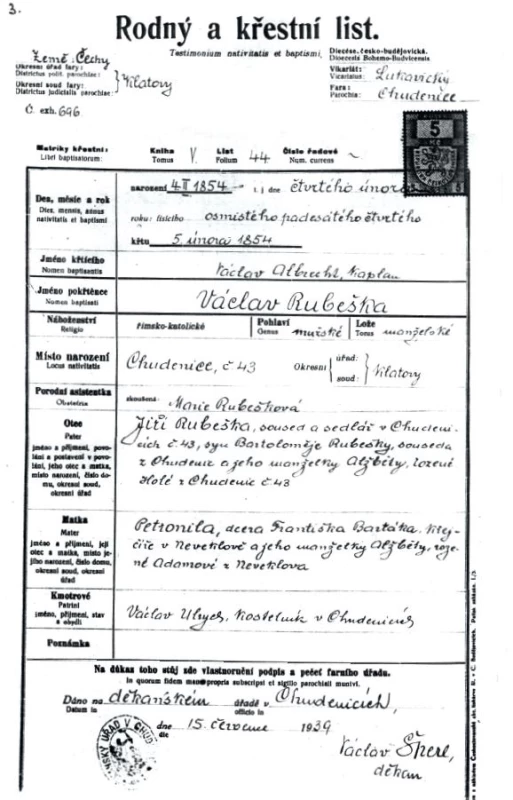 3.
Rodný a křestní list.
Testimonium nativitatis et baptismi.
Země: Čechy
Okresní úřad fary:
Districtus polit. parochiae:
Okresní soud fary:
Districtus judicialis parochiae:
} Klatovy
Č. exh. 696
Diecése česko-budějovická.
Dioecesis Bohemo-Budvicensis.
Vikariát:
Vicariatus: Lukavický
Fara:
Parochia: Chudenice
Matriky křestní:
Libri baptisatorum:
Kniha
Tomus V.
List
Folium 44
Číslo řadové
Num. currens ~
5
Den, měsíc a rok
Dies, mensis, annus
nativitatis et baptismi
narození 4/II 1854 t. j dne čtvrtého února
roku: tisícího osmistého padesátého čtvrtého
křtu 5. února 1854
Jméno křtícího
Nomen baptisantis
Václav Albrecht, Kaplan
Jméno pokřtěnce
Nomen baptisati
Václav Rubeška
Náboženství
Religio
římsko-katolické
Pohlaví
Genus mužské
Lože
Torus manželské
Místo narození
Locus nativitatis
Chudenice, č. 43
Okresní { úřad: soud: } Klatovy
Porodní asistentka
Obstetrix
zkoušená: Marie Rubešková
Otec
Pater
jméno a příjmení, povo-
lání a postavení v povo-
lání, jeho otec a matka,
místo narození, číslo do-
mu, okresní soud,
okresní úřad
Jiří Rubeška, soused a sedlář v Chudeni-
cích č. 43, syn Bartoloměje Rubešky, souseda
z Chudenic a jeho manželky Alžběty, rozené
Holé z Chudenic č 43
Matka
Mater
jméno a příjmení, její
otec a matka, místo je-
jího narození, číslo domu,
okresní soud, okresní
úřad
Petronila, dcera Františka Bartáka, krej-
číře v Neveklově a jeho manželky Alžběty, roze-
né Adamové z Neveklova
Kmotrové
Patrini
jméno, příjmení, stav
a obydlí
Václav Ulrych, kostelník v Chudenicích
Poznámka
Na důkaz toho stůj zde vlastnoruční podpis a pečeť farního úřadu.
In quorum fidem manu propria subscripsi et sigillo parochiali munivi.
Dáno na děkanském úřadě v Chudenicích,
Datum in officio in
dne 15. července 1939
die
Václav Šperl,
děkan